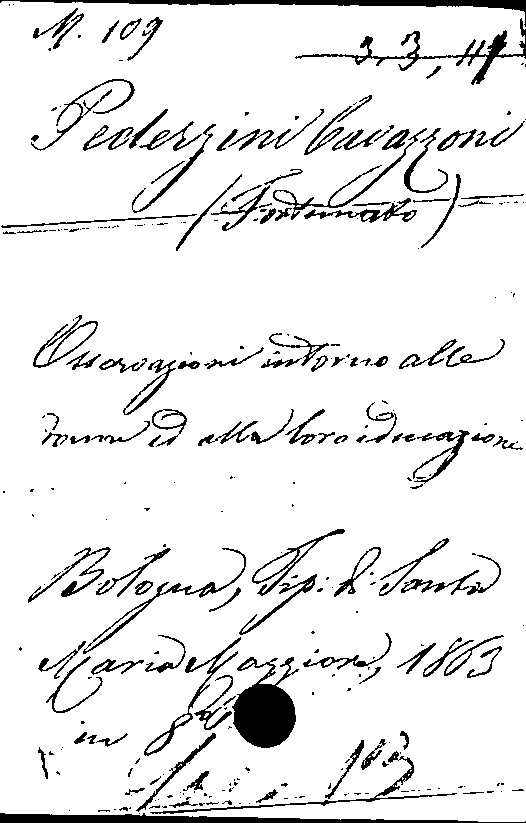 M. 109
3, 3, 11
Pederzini Cavazzoni
(Fortunato)
Osservazioni intorno alle
donne ed alla loro educazione
Bologna, Tip: di Santa
Maria Maggiore, 1863
in 8°